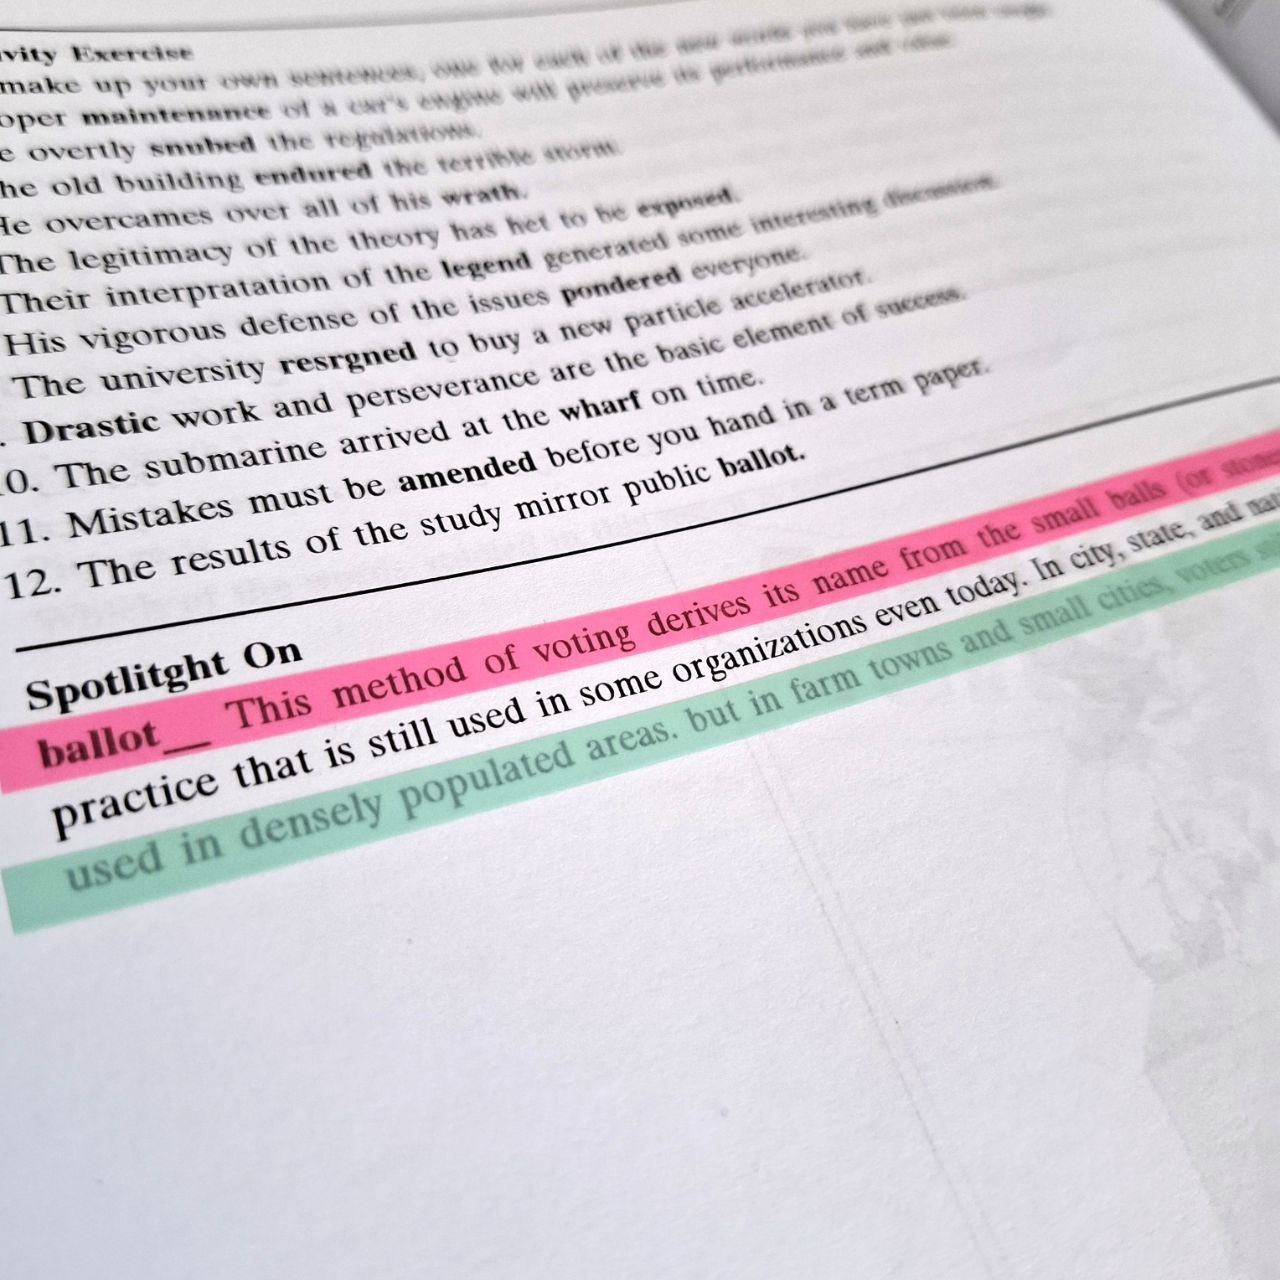 vity Exercise
make up your own sentences, one for each of the new words you have
oper maintenance of a car's engine will preserve its performance and value.
e overtly snubed the regulations.
he old building endured the terrible storm.
He overcames over all of his wrath.
The legitimacy of the theory has het to be exposed.
Their interpratation of the legend generated some interesting discussion.
His vigorous defense of the issues pondered everyone.
The university resrgned to buy a new particle accelerator.
. Drastic work and perseverance are the basic element of success.
10. The submarine arrived at the wharf on time.
11. Mistakes must be amended before you hand in a term paper.
12. The results of the study mirror public ballot.
Spotlitght On
ballot__ This method of voting derives its name from the small balls (or stones
practice that is still used in some organizations even today. In city, state, and
used in densely populated areas. but in farm towns and small cities, voters